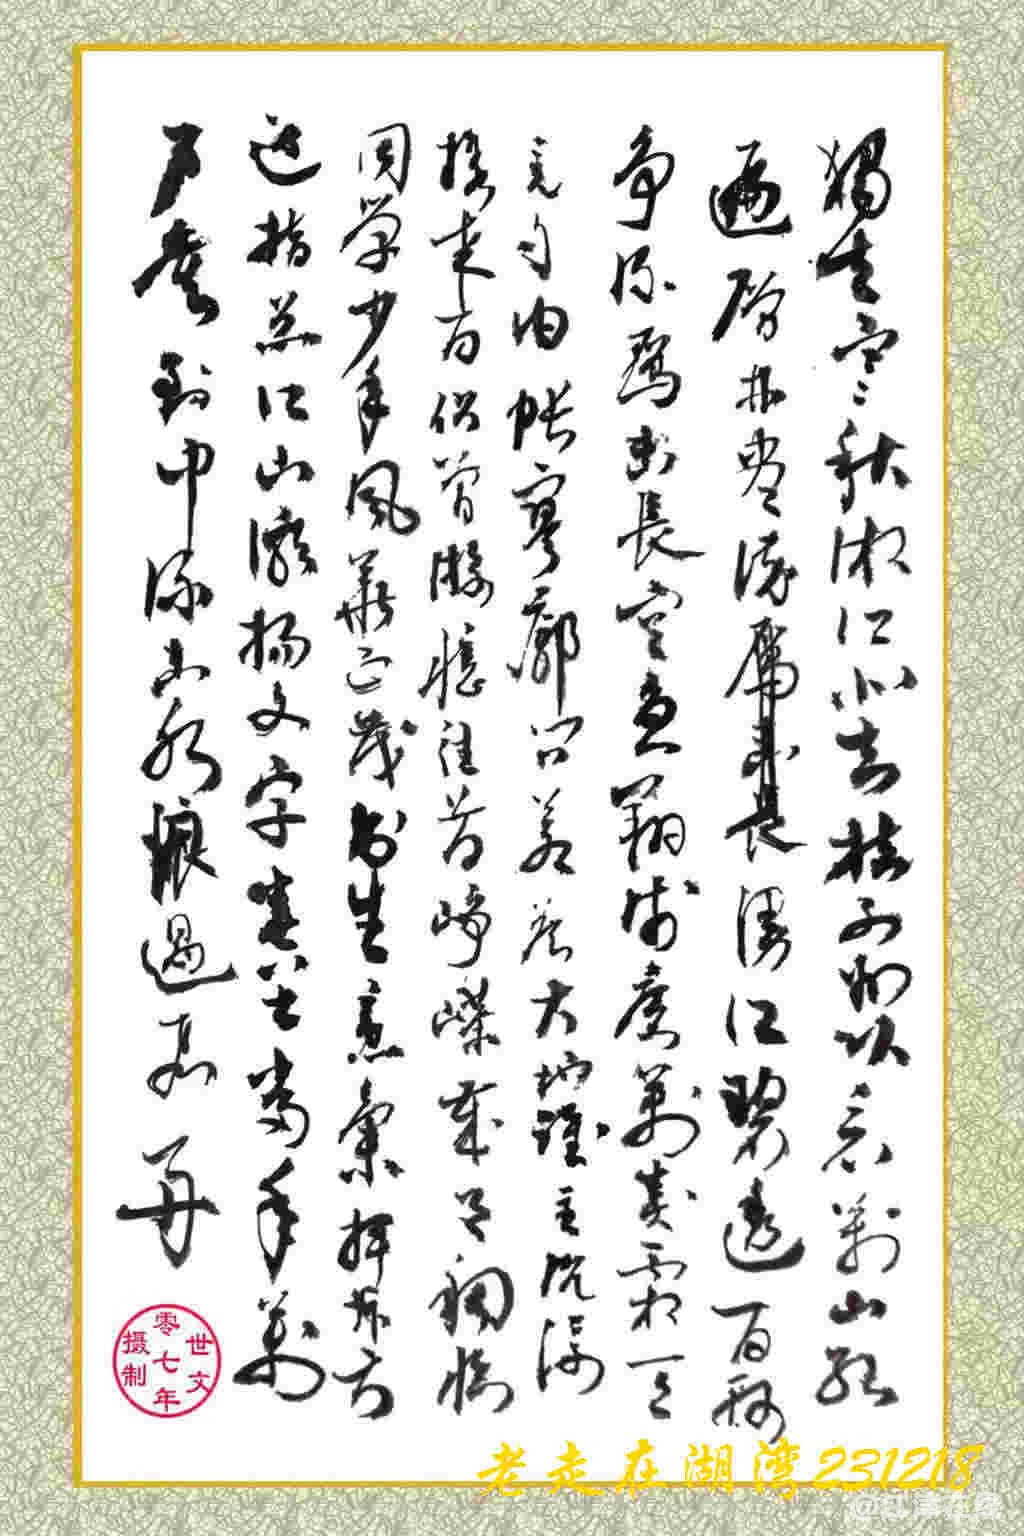 獨立寒秋湘江北去桔子州頭看萬山紅
遍層林尽染長漫江碧透百舸
争流鹰击長空鱼翔浅底萬类霜天
竞自由怅寥廓问苍茫大地谁主沉浮
携来百侣曾游憶往昔峥嵘岁月稠恰
同学少年风華正茂书生意氣挥斥方
遒指点江山激扬文字粪土当年萬
户侯到中流击水浪遏飞舟
世文
零七年
摄制
老走在湖湾231218